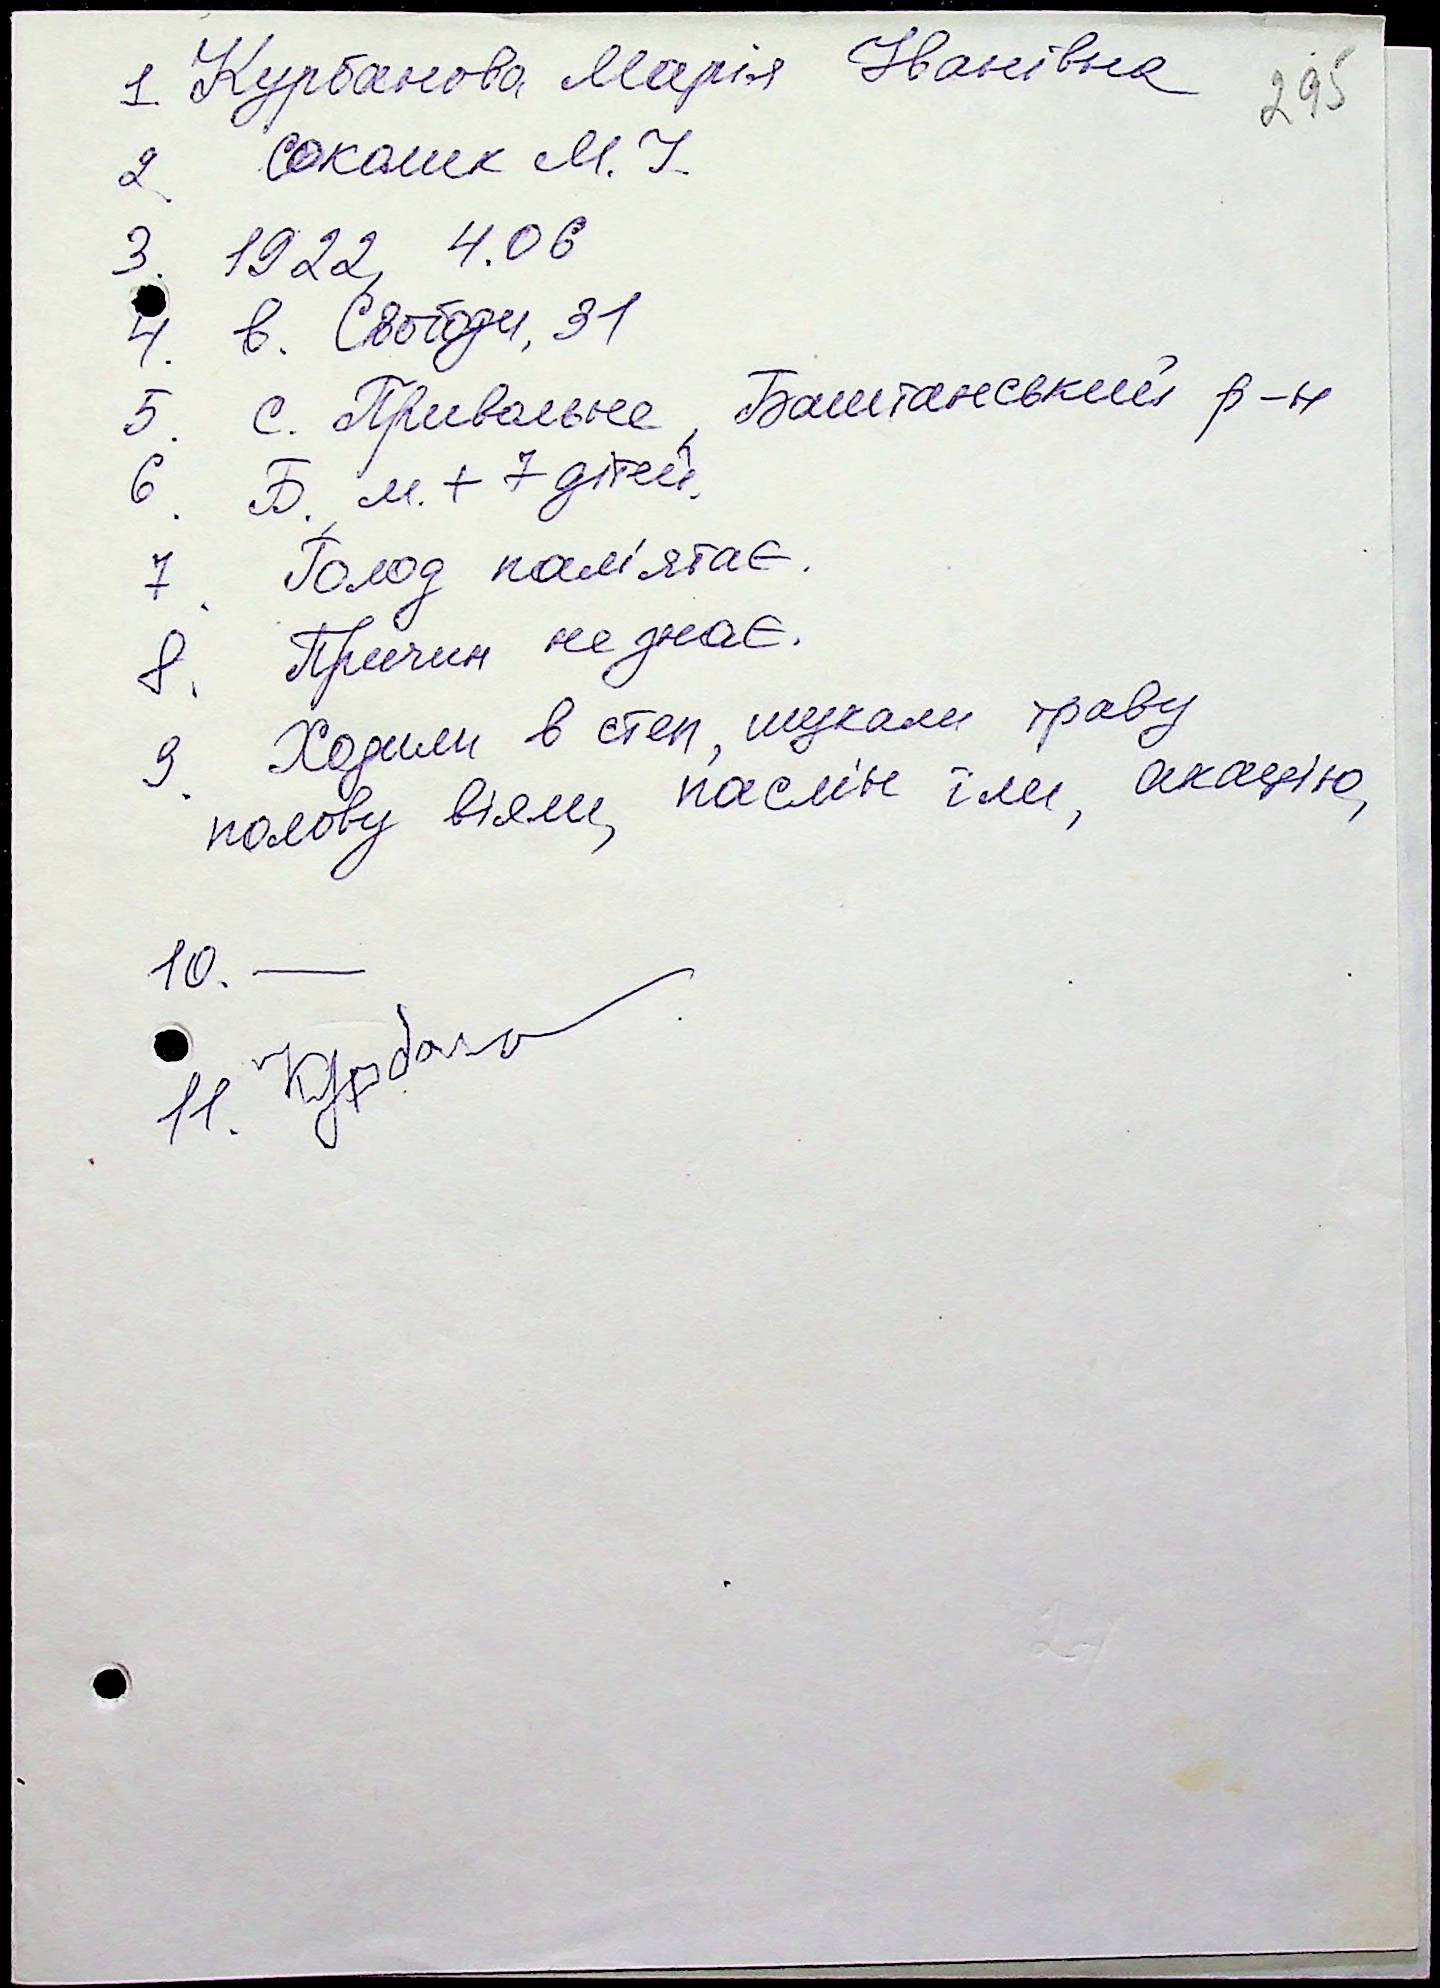 295
1. Курбанова Марія Іванівна
2. Соколик М. І.
3. 1922, 4.06
4. в. Свободи, 31
5. с. Привольне, Баштанський р-н
6. Б., м. + 7 дітей.
7. Голод пам'ятає.
8. Причин не знає.
9. Ходили в степ, шукали траву
полову віяли, паслін їли, акацію,
10. —
11. Курбано